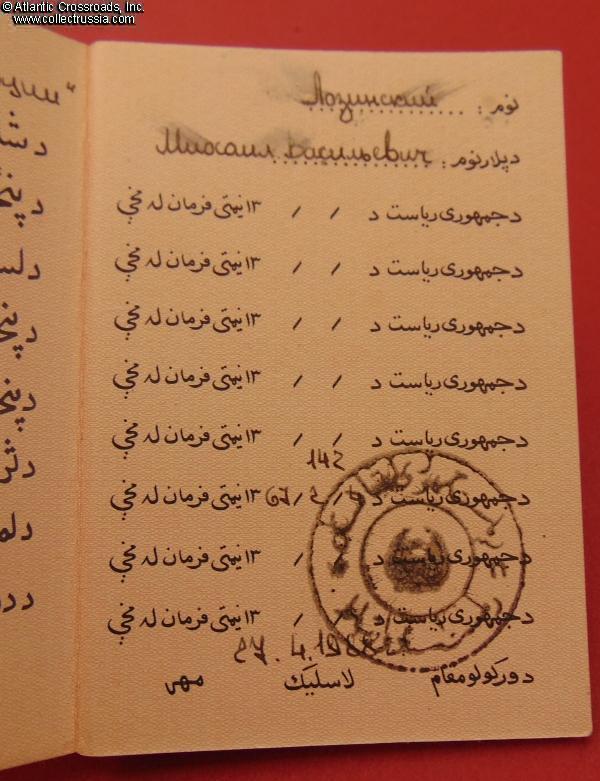 © Atlantic Crossroads, Inc.
www.collectrussia.com
نوم: Лозинский
د پلار نوم: Михаил Васильевич
د جمهوری ریاست د / / ۱۳ نیټې فرمان له مخې
د جمهوری ریاست د / / ۱۳ نیټې فرمان له مخې
د جمهوری ریاست د / / ۱۳ نیټې فرمان له مخې
د جمهوری ریاست د / / ۱۳ نیټې فرمان له مخې
د جمهوری ریاست د / / ۱۳ نیټې فرمان له مخې
142
د جمهوری ریاست د / 2 / 67 ۱۳ نیټې فرمان له مخې
د جمهوری ریاست د / / ۱۳ نیټې فرمان له مخې
د جمهوری ریاست د / / ۱۳ نیټې فرمان له مخې
27.4.1988
د ورکولو مقام لاسلیک مهر